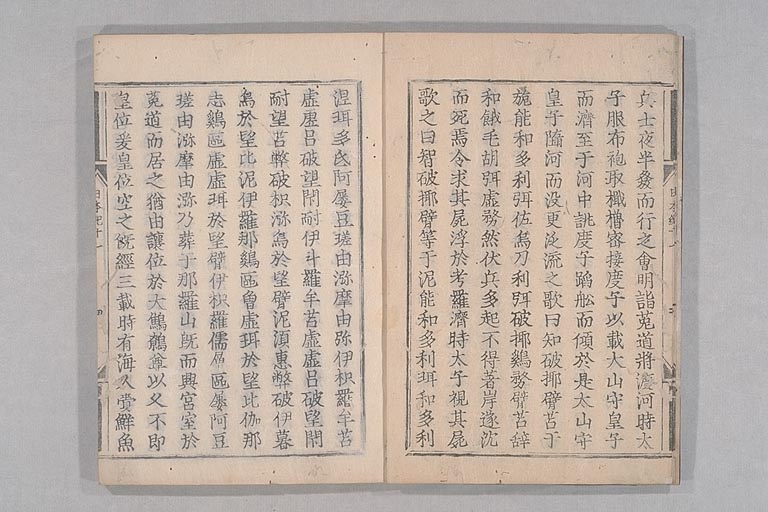 兵士夜半發而行之會明詣菟道將渡河時太
子服布袍取檝櫓密接度子以載大山守皇子
而濟至于河中誂度子蹈舩而傾於是大山守
皇子墮河而没更泛流之歌曰知破揶臂苦于
旎能和多利珥佐烏刀利珥破揶鷄務臂苦辞
和餓毛胡珥虚務然伏兵多起不得著岸遂沈
而死焉令求其屍浮於考羅濟時太子視其屍
歌之曰智破揶臂等于泥能和多利珥和多利
涅珥多氐阿屢豆瑳由瀰摩由弥伊枳羅牟苦
虚虚呂破望閉耐伊斗羅牟苔虚虚呂破望閉
耐望苔弊破枳瀰烏於望臂泥湏惠弊破伊暮
烏於望比泥伊羅那鷄區曾虚珥於望比伽那
志鷄區虚虚珥於望臂伊枳羅儒層區屢阿豆
瑳由瀰摩由瀰乃葬于那羅山旣而興宮室於
菟道而居之猶由讓位於大鷦鷯尊以久不即
皇位爰皇位空之旣經三載時有海人賷鮮魚